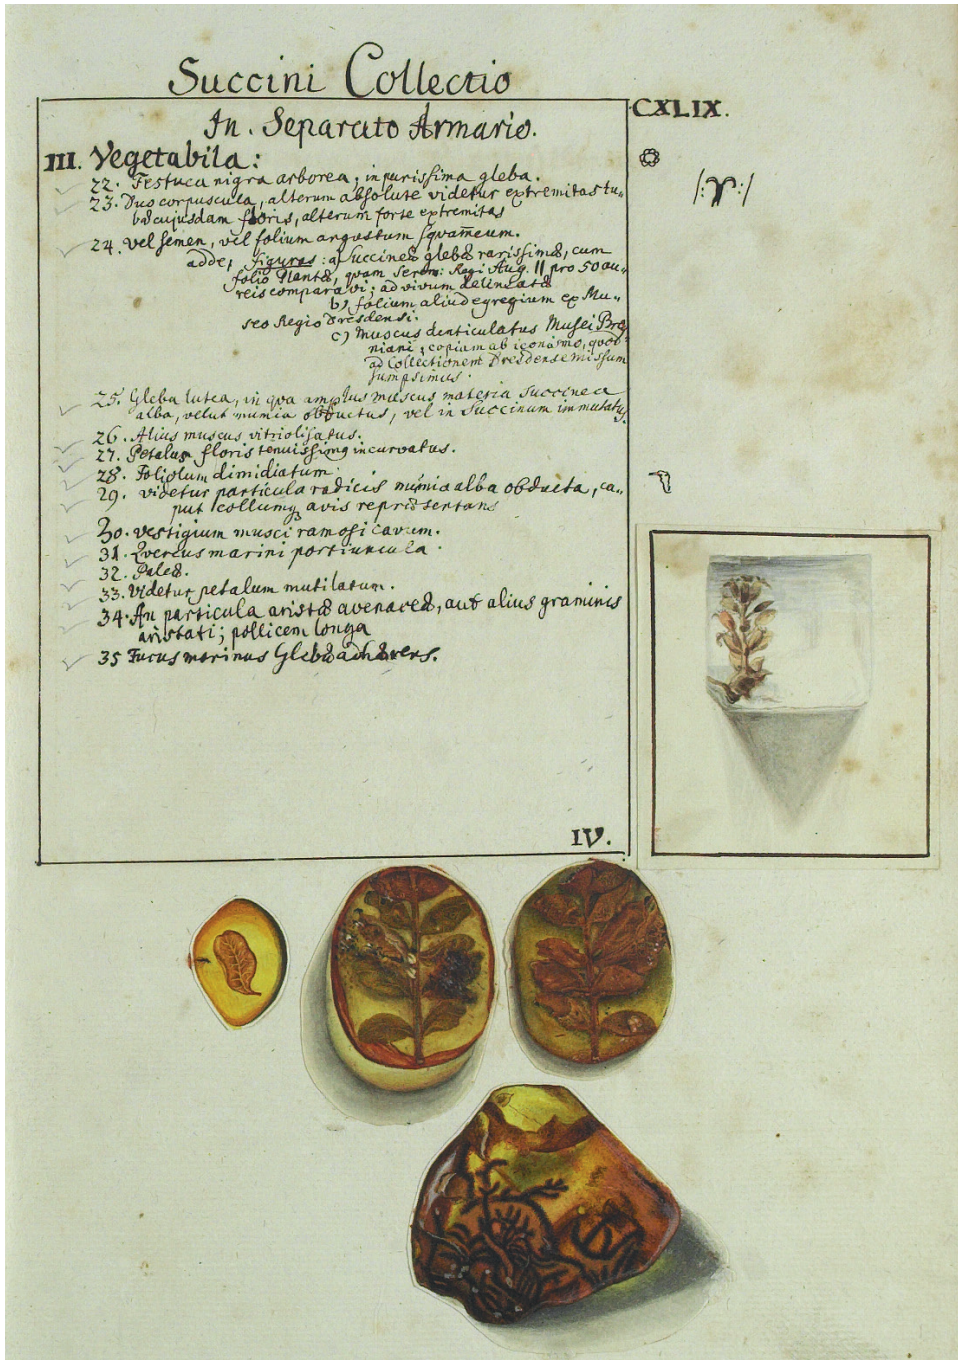 Succini Collectio
In. Separato Armario.
CXLIX.
III. Vegetabila:
22. Festuca nigra arborea; in purissima gleba.
23. Duo corpuscula, alterum absolute videtur extremitas tu-
bæ cujusdam floris, alterum forte extremitas
24. vel semen, vel folium angustum squameum.
adde, figuras: a) succineæ glebæ rarissimæ, cum
folio Plantæ, quam Seren: Regi Aug. II pro 50 au-
reis comparavi; ad vivum delineatæ
b) folium aliud egregium ex Mu-
seo Regio Dresdensi.
c) Muscus denticulatus Musei
niani, copiam ab iconismo, quod
ad Collectionem Dresdense missum
sumpsimus.
25. Gleba lutea, in qva amplus muscus materia succinea
alba, velut mumia obductus, vel in Succinum immutatus.
26. Alius muscus vitriolisatus.
27. Petalum floris tenuissimg incurvatus.
28. Foliolum dimidiatum.
29. videtur particula radicis mumia alba obducta, ca-
put collumq avis repræsentans
30. vestigium musci ramosi cavum.
31. Qvercus marini portiuncula.
32. Paleæ.
33. Videtur petalum mutilatum.
34. An particula aristæ avenaceæ, aut alius graminis
aristati; pollicem longa
35 Fucus marinus Glebæ adhærens.
IV.